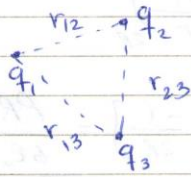 r12
q2
q1
r23
r13
q3